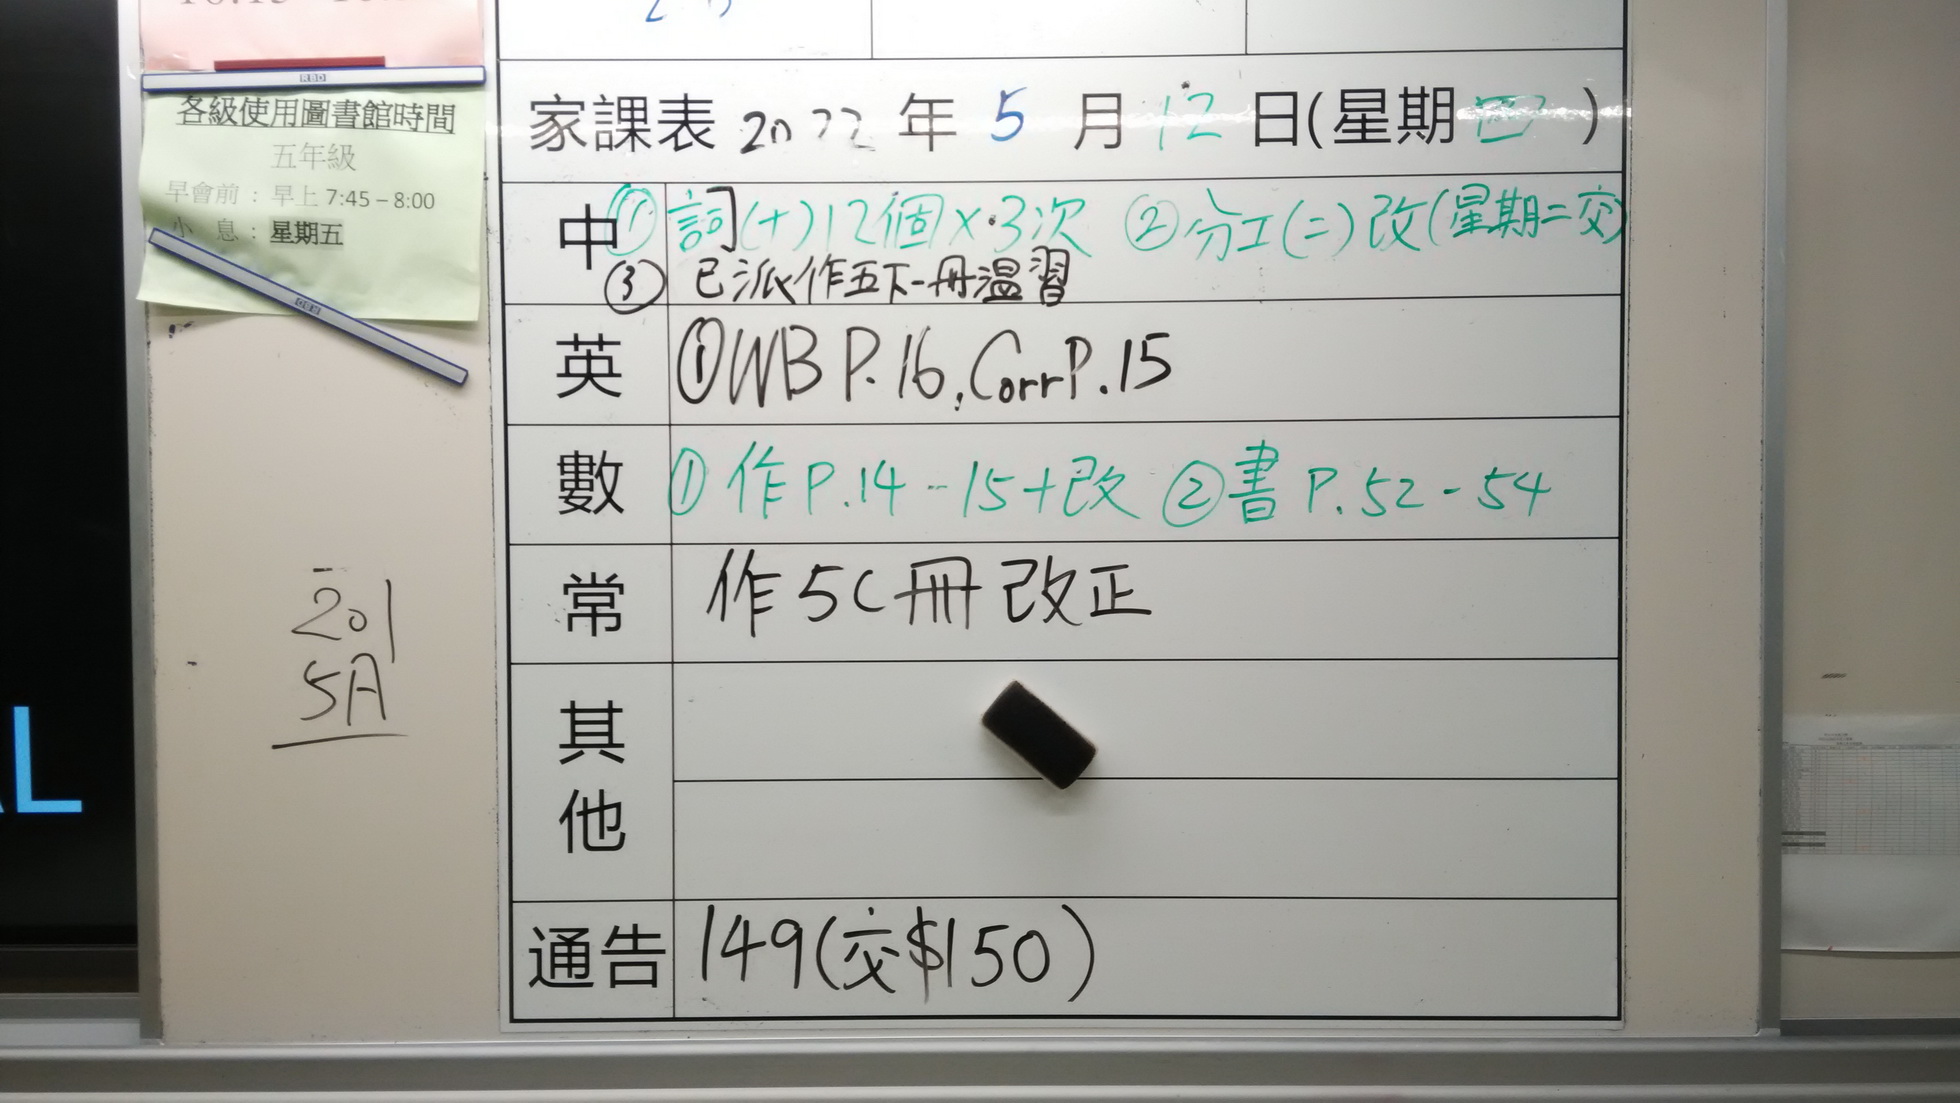 各級使用圖書館時間
五年級
早會前：早上 7:45 – 8:00
小 息：星期五
201
5A
家課表 2022 年 5 月 12 日(星期四)
中 ① 詞(十)12個×3次 ②分工(二)改(星期二交)
③ 已派作五下一冊溫習
英 ①WB P.16,Corr P.15
數 ① 作 P.14-15+改 ②書 P.52-54
常 作5C冊改正
其他
通告 149(交$150)